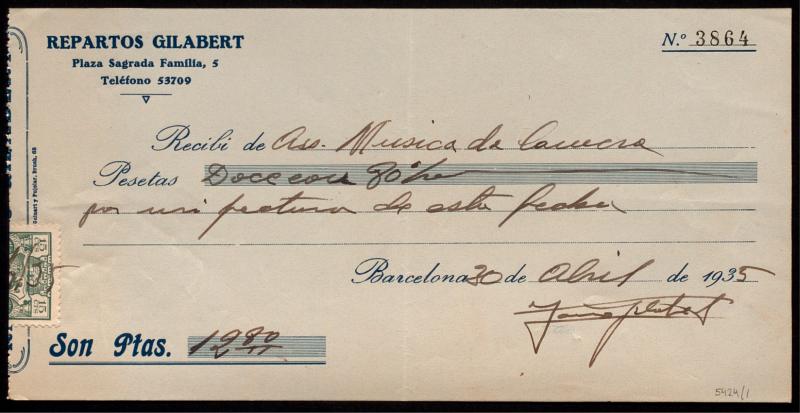 REPARTOS GILABERT
Plaza Sagrada Família, 5
Teléfono 53709
N.º 3864
Recibí de Ass. Musica da Camera
Pesetas Doce con 80 
por mi factura de esta fecha
Barcelona 30 de Abril de 1935
Son Ptas. 12 80
15
15
5424/1